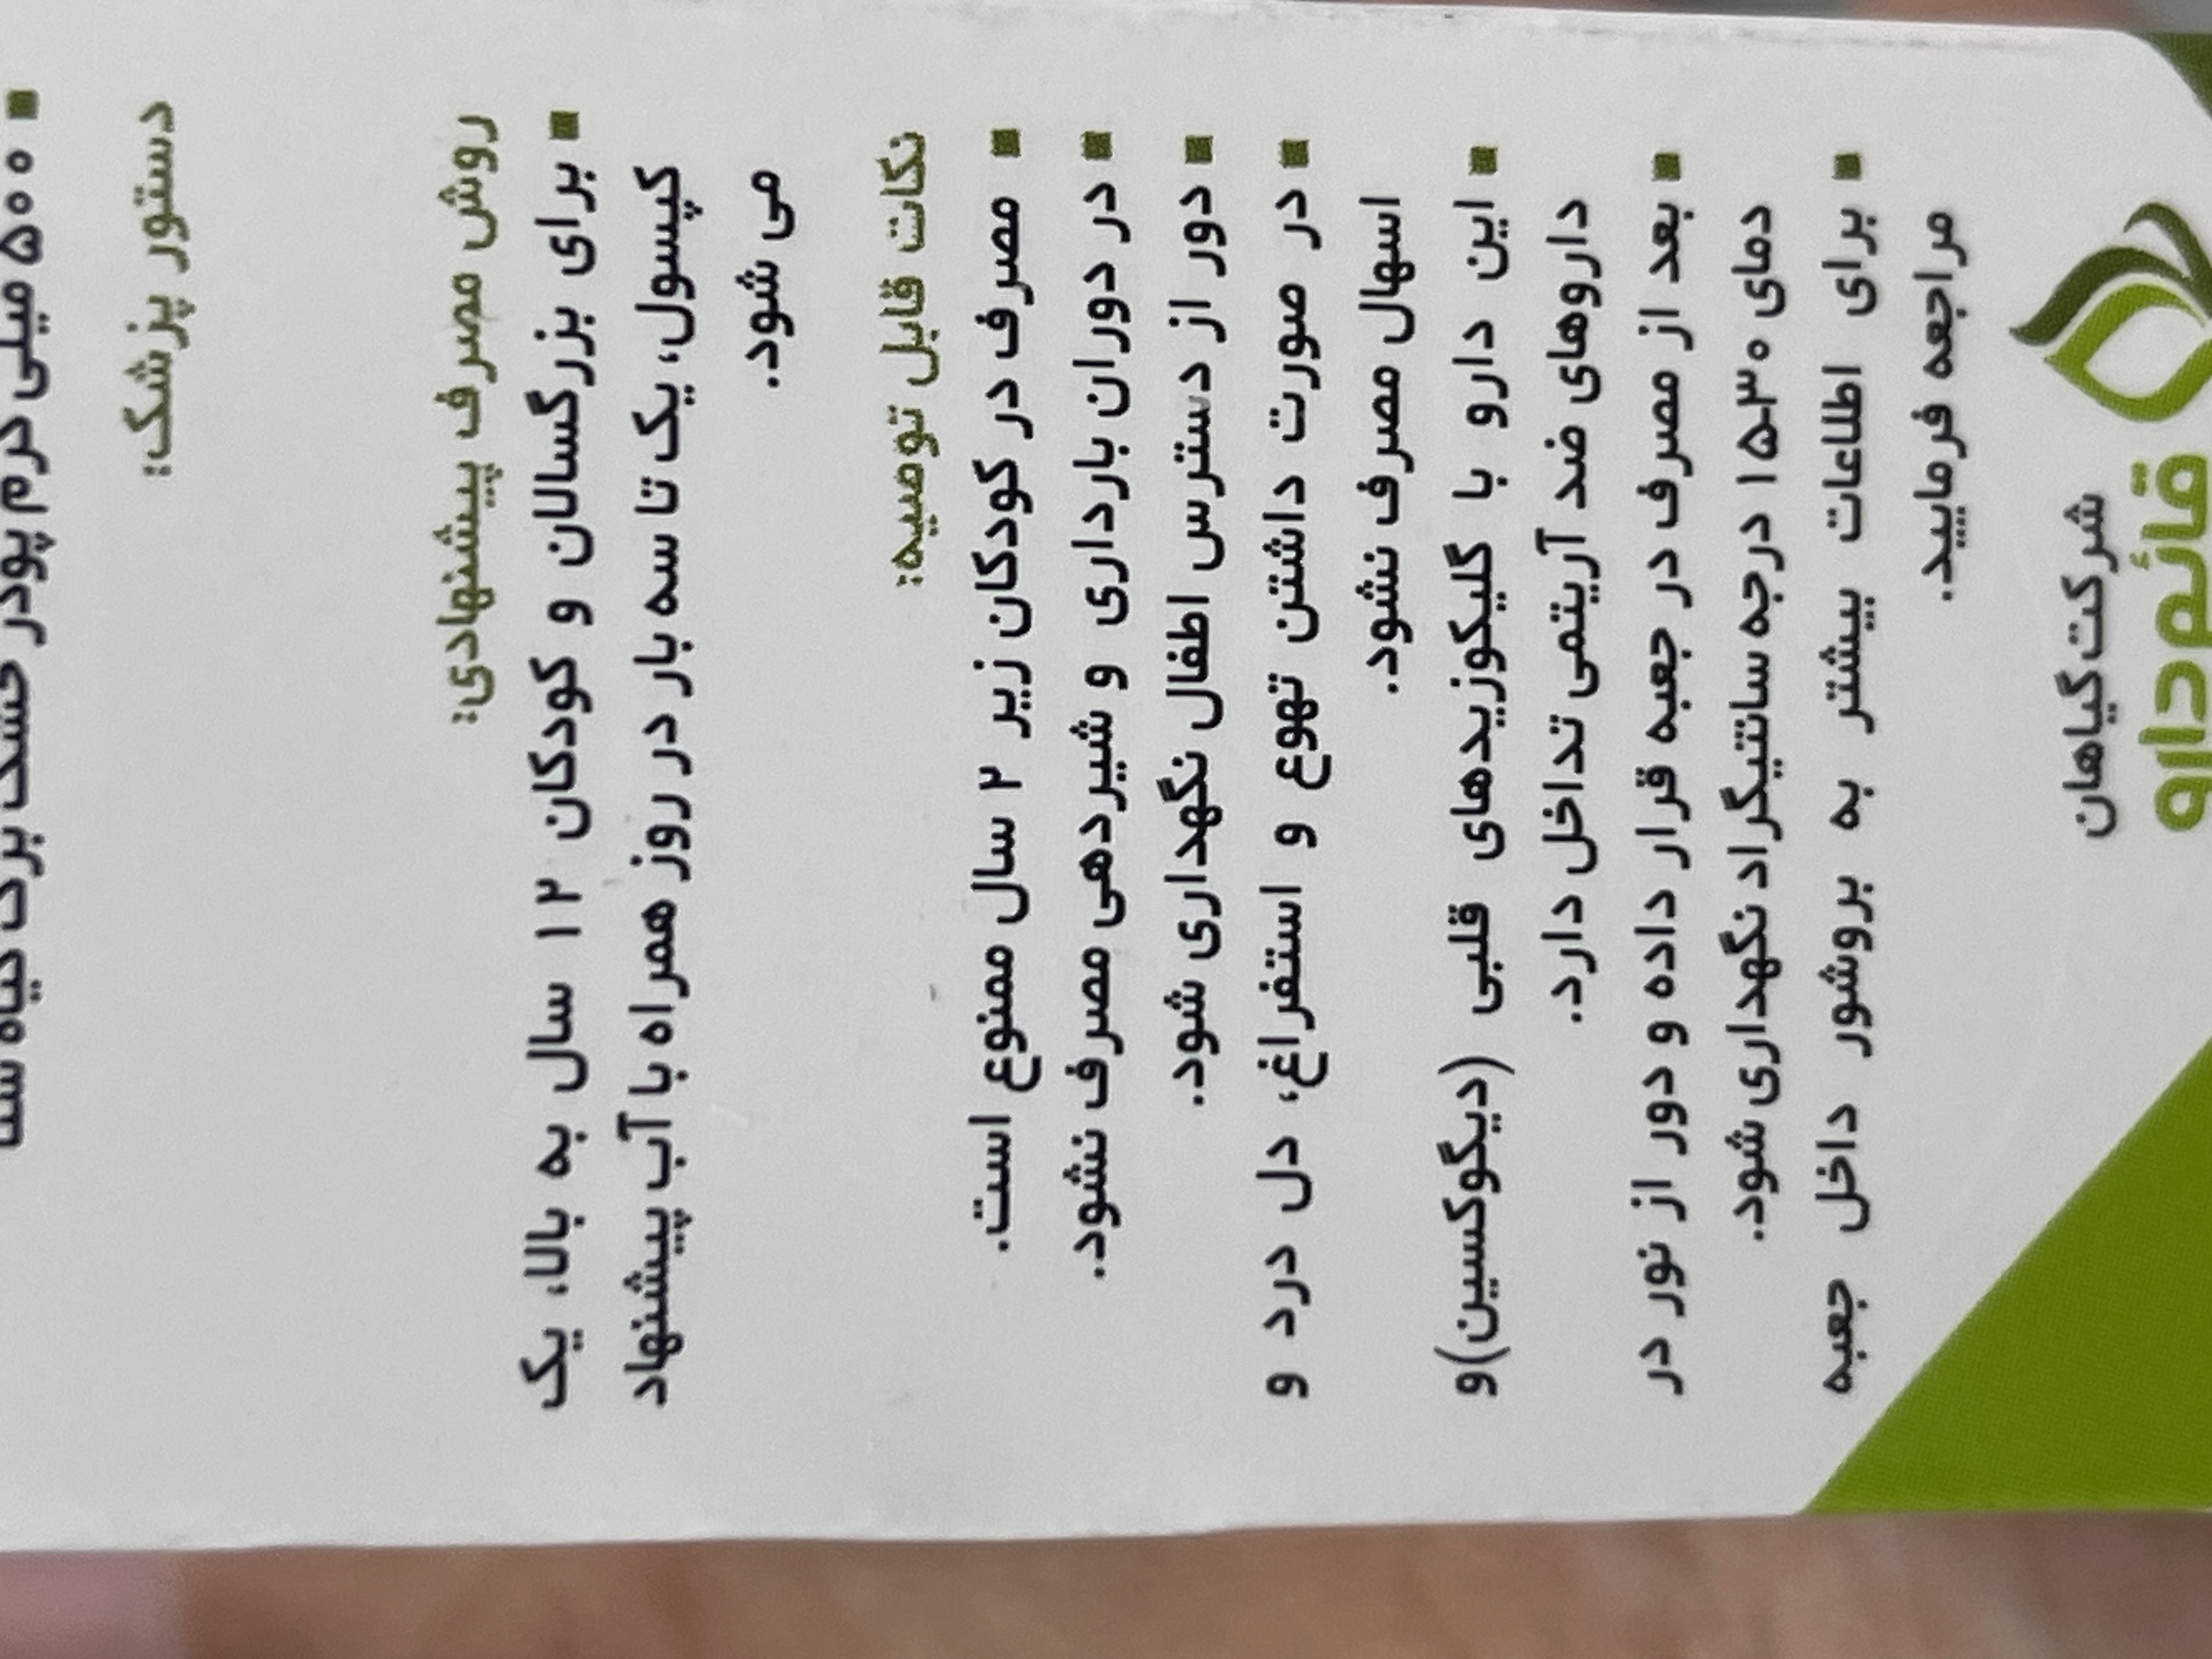 دستور پزشک:
روش مصرف پیشنهادی:
▪ برای بزرگسالان و کودکان ۱۲ سال به بالا، یک
کپسول، یک تا سه بار در روز همراه با آب پیشنهاد
می شود.
نکات قابل توصیه:
▪ مصرف در کودکان زیر ۲ سال ممنوع است.
▪ در دوران بارداری و شیردهی مصرف نشود.
▪ دور از دسترس اطفال نگهداری شود.
▪ در صورت داشتن تهوع و استفراغ، دل درد و
اسهال مصرف نشود.
▪ این دارو با گلیکوزیدهای قلبی (دیگوکسین)و
داروهای ضد آریتمی تداخل دارد.
▪ بعد از مصرف در جعبه قرار داده و دور از نور در
دمای ۳۰-۱۵ درجه سانتیگراد نگهداری شود.
▪ برای اطلاعات بیشتر به بروشور داخل جعبه
مراجعه فرمایید.
شرکت گیاهان
قائم دارو